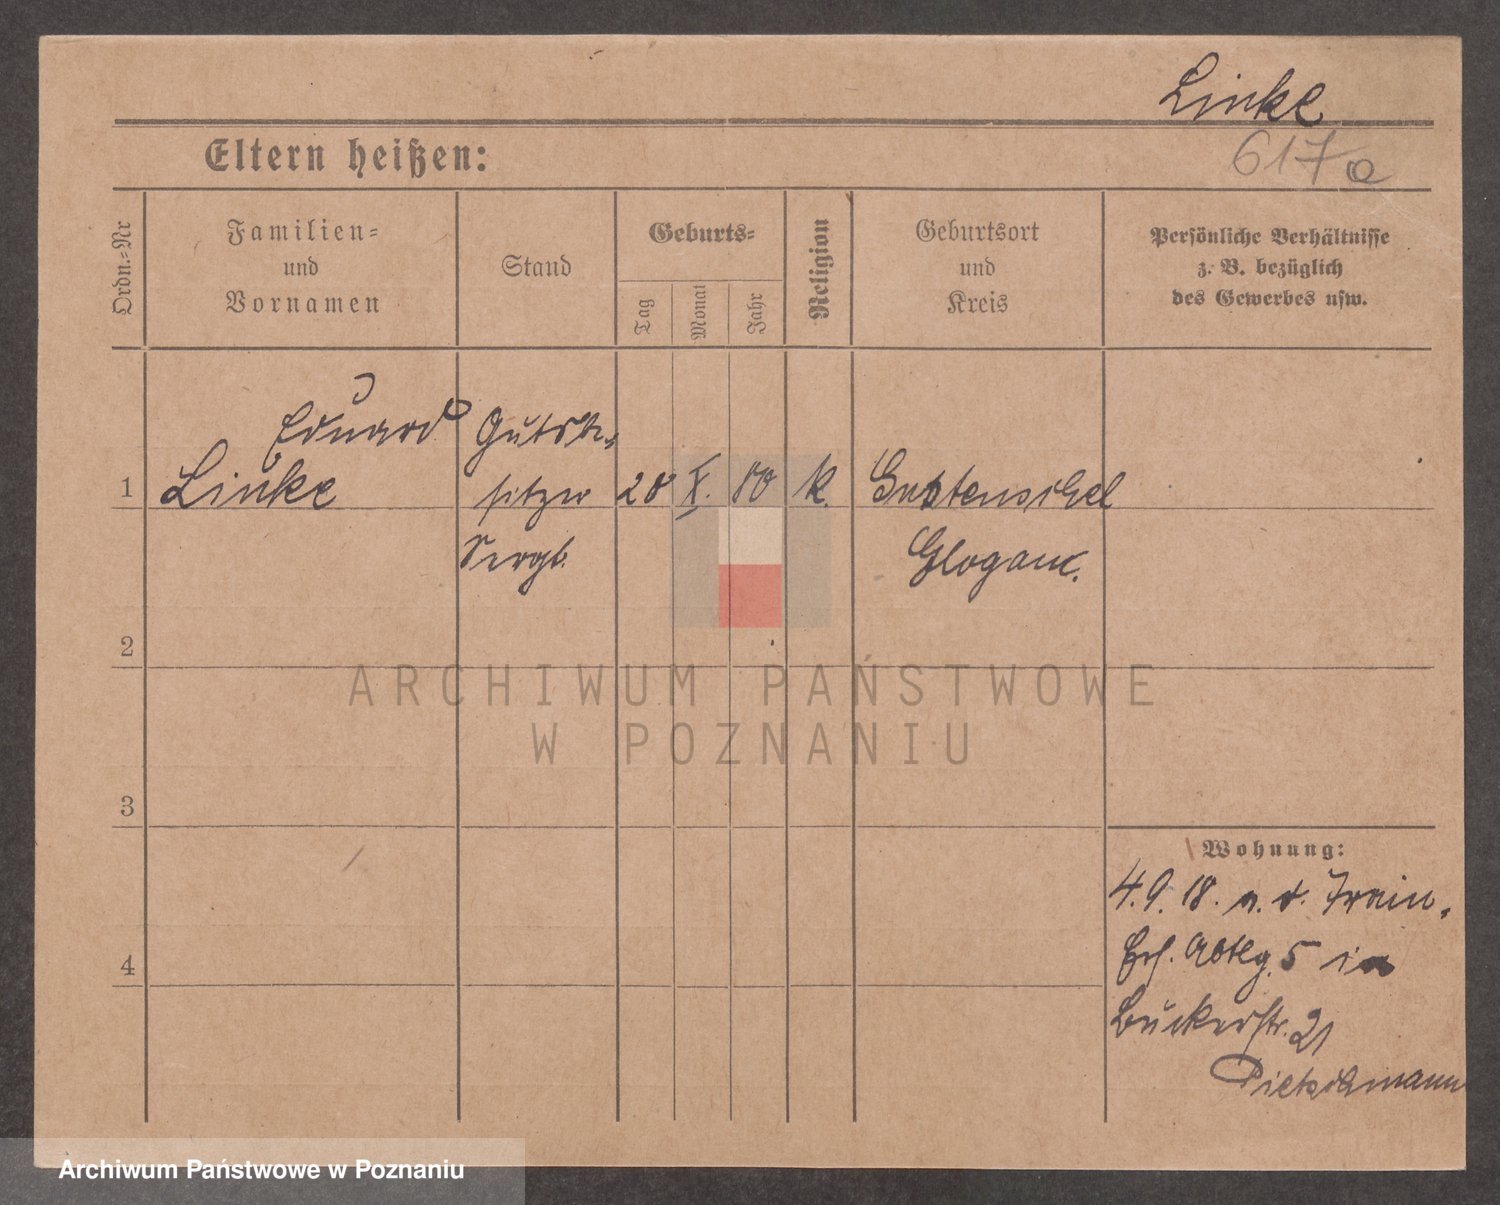 Linke
617a
Eltern heißen:
Ordn.-Nr
Familien-
und
Vornamen
Stand
Geburts-
Tag
Monat
Jahr
Religion
Geburtsort
und
Kreis
Persönliche Verhältnisse
z. B. bezüglich
des Gewerbes usw.
Eduard
Gutsbe-
1 Linke sitzer 28 X. 80 k.
Glogau.
2
3
4
Wohnung:
4.9.18. a. d. Train.
Ers. Abtlg. 5 in
Bukerstr. 21
Pietschmann
ARCHIWUM PAŃSTWOWE
W POZNANIU
Archiwum Państwowe w Poznaniu